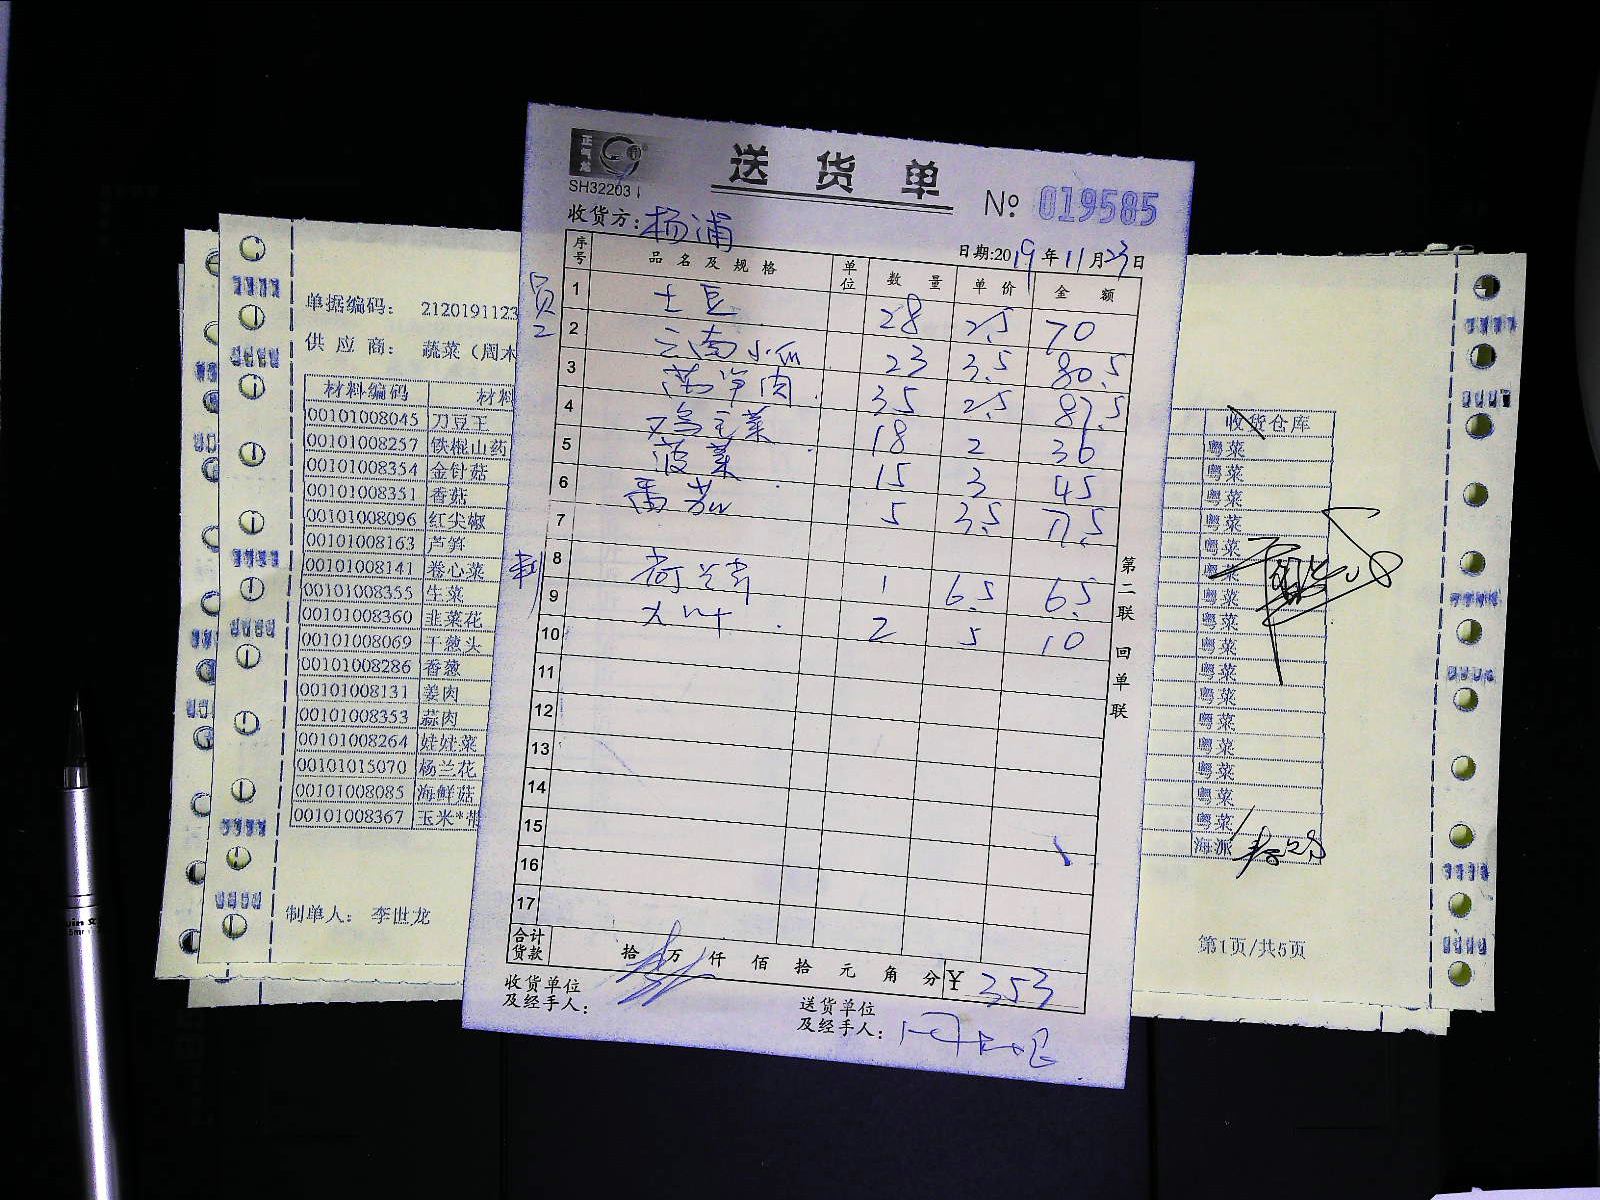 正气龙
SH32203
送货单
№ 019585
收货方: 杨浦
日期:2019年11月23日
序号 品名及规格 单位 数量 单价 金额
员工
1 土豆 28 2.5 70
2 云南小瓜 23 3.5 80.5
3 莴笋肉 35 2.5 87.5
4 鸡毛菜 18 2 36
5 菠菜 15 3 45
6 番茄 5 3.5 17.5
7
8 荷兰芹 1 6.5 6.5
9 大叶 2 5 10
10
11
12
13
14
15
16
17
合计货款 拾 万 仟 佰 拾 元 角 分 ¥ 353
收货单位及经手人:
送货单位及经手人:
第二联 回单联
单据编码: 2120191123
供应商: 蔬菜(周木
材料编码 材料
00101008045 刀豆王
00101008257 铁棍山药
00101008354 金针菇
00101008351 香菇
00101008096 红尖椒
00101008163 芦笋
00101008141 卷心菜
00101008355 生菜
00101008360 韭菜花
00101008069 干葱头
00101008286 香葱
00101008131 姜肉
00101008353 蒜肉
00101008264 娃娃菜
00101015070 杨兰花
00101008085 海鲜菇
00101008367 玉米*带
制单人: 李世龙
收货仓库
粤菜
粤菜
粤菜
粤菜
粤菜
粤菜
粤菜
粤菜
粤菜
粤菜
粤菜
粤菜
粤菜
粤菜
粤菜
粤菜
海派
第1页/共5页